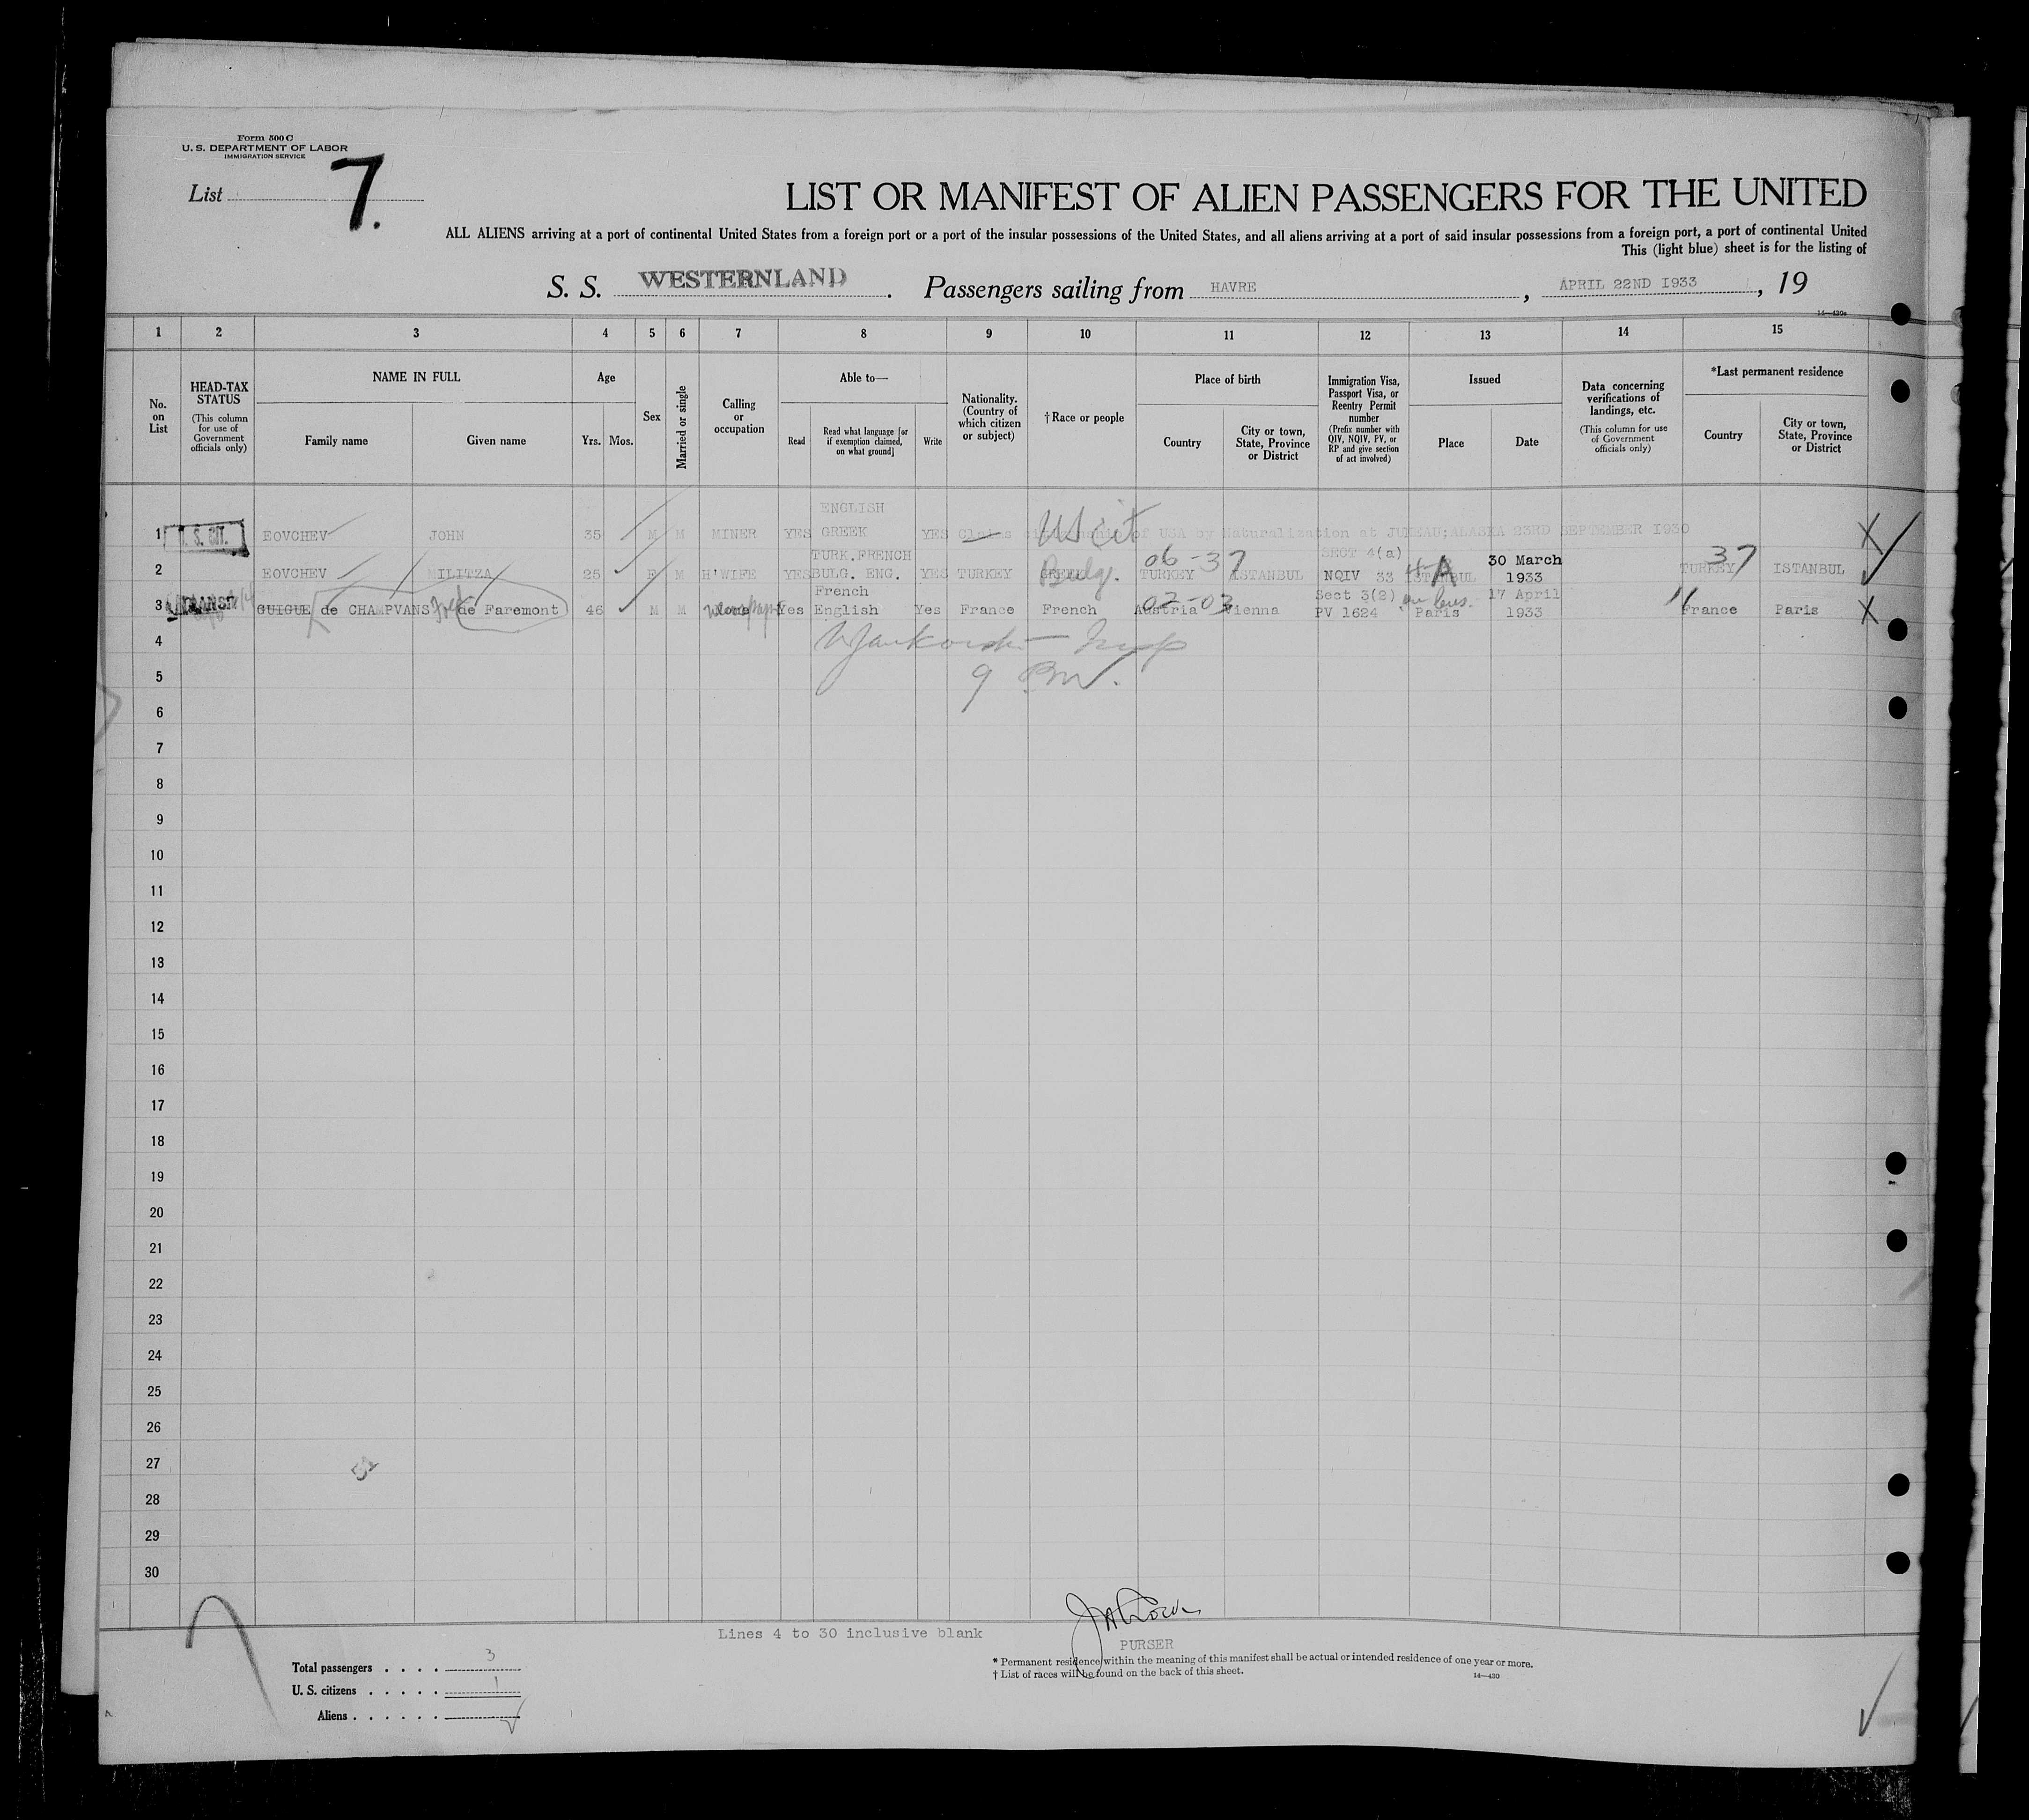 Form 500 C
U. S. DEPARTMENT OF LABOR
IMMIGRATION SERVICE
List 7.
LIST OR MANIFEST OF ALIEN PASSENGERS FOR THE UNITED
ALL ALIENS arriving at a port of continental United States from a foreign port or a port of the insular possessions of the United States, and all aliens arriving at a port of said insular possessions from a foreign port, a port of continental United
This (light blue) sheet is for the listing of
S. S. WESTERNLAND. Passengers sailing from HAVRE, APRIL 22ND 1933, 19
14—430a
1 2 3 4 5 6 7 8 9 10 11 12 13 14 15
No. on List
HEAD-TAX STATUS (This column for use of Government officials only)
NAME IN FULL
Family name Given name
Age
Yrs. Mos.
Sex
Married or single
Calling or occupation
Able to—
Read
Read what language [or if exemption claimed, on what ground]
Write
Nationality. (Country of which citizen or subject)
†Race or people
Place of birth
Country
City or town, State, Province or District
Immigration Visa, Passport Visa, or Reentry Permit number (Prefix number with QIV, NQIV, PV, or RP and give section of act involved)
Issued
Place Date
Data concerning verifications of landings, etc. (This column for use of Government officials only)
*Last permanent residence
Country
City or town, State, Province or District
ENGLISH
1 U. S. CIT. EOVCHEV JOHN 35 M M MINER YES GREEK YES Claims citizenship of USA by Naturalization at JUNEAU;ALASKA 23RD SEPTEMBER 1930 X
US Cit
TURK.FRENCH 06-37 SECT 4(a) 30 March 37
2 EOVCHEV MILITZA 25 F M H'WIFE YES BULG. ENG. YES TURKEY Bulg. TURKEY ISTANBUL NQIV 33 ISTANBUL 1933 TURKEY ISTANBUL
4 A
French 02-03 Sect 3(2) 17 April
3 TRANSIT GUIGUE de CHAMPVANS de Faremont 46 M M Yes English Yes France French Austria Vienna PV 1624 Paris 1933 France Paris X
4
9 PM.
5
6
7
8
9
10
11
12
13
14
15
16
17
18
19
20
21
22
23
24
25
26
27
28
29
30
Lines 4 to 30 inclusive blank
PURSER
Total passengers . . . . 3
U. S. citizens . . . . . 1
Aliens . . . . . .
* Permanent residence within the meaning of this manifest shall be actual or intended residence of one year or more.
† List of races will be found on the back of this sheet.
14—430